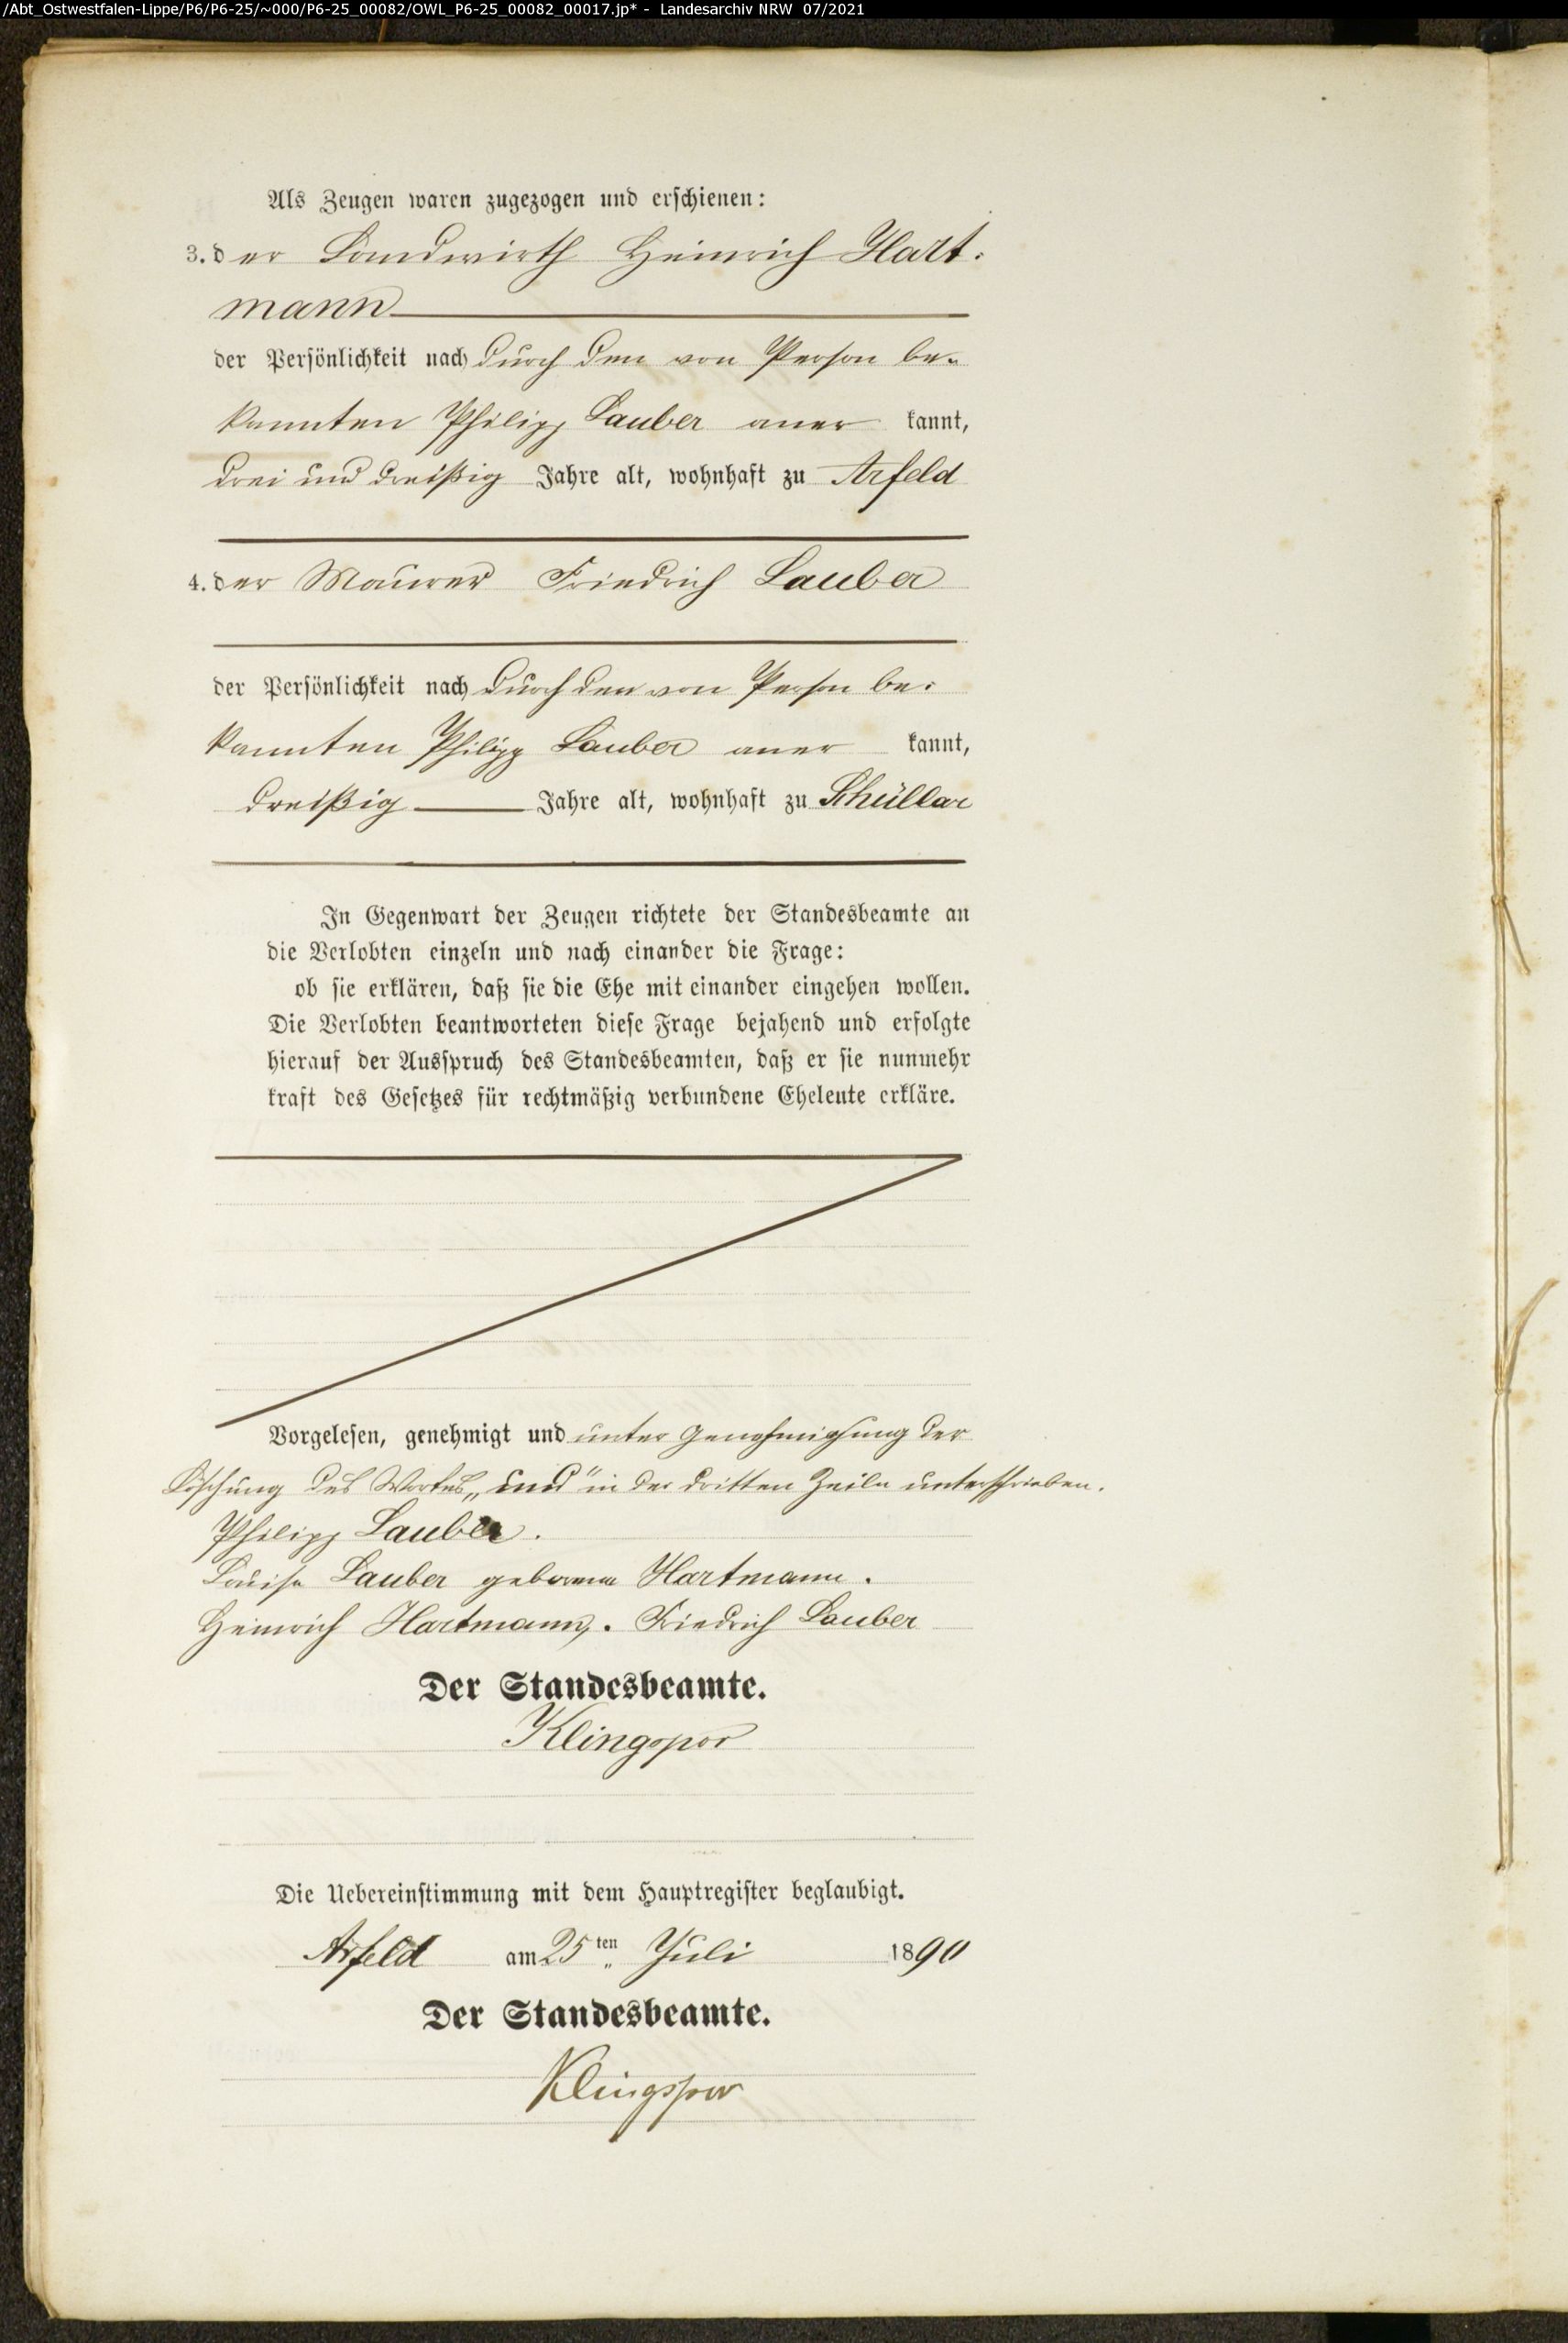 /Abt_Ostwestfalen-Lippe/P6/P6-25/~000/P6-25_00082/OWL_P6-25_00082_00017.jp* - Landesarchiv NRW 07/2021
Als Zeugen waren zugezogen und erschienen:
3. der Landwirth Heinrich Hart-
mann
der Persönlichkeit nach durch den von Person be-
kannten Philipp Lauber aner kannt,
drei und dreißig Jahre alt, wohnhaft zu Arfeld
4. der Maurer Friedrich Lauber
der Persönlichkeit nach durch den von Person be-
kannten Philipp Lauber aner kannt,
dreißig Jahre alt, wohnhaft zu Schüllar
In Gegenwart der Zeugen richtete der Standesbeamte an
die Verlobten einzeln und nach einander die Frage:
ob sie erklären, daß sie die Ehe mit einander eingehen wollen.
Die Verlobten beantworteten diese Frage bejahend und erfolgte
hierauf der Ausspruch des Standesbeamten, daß er sie nunmehr
kraft des Gesetzes für rechtmäßig verbundene Eheleute erkläre.
Vorgelesen, genehmigt und unter Genehmigung der
Löschung des Wortes „und" in der dritten Zeile unterschrieben.
Philipp Lauber.
Louise Lauber geborene Hartmann.
Heinrich Hartmann. Friedrich Lauber
Der Standesbeamte.
Klingspor
Die Uebereinstimmung mit dem Hauptregister beglaubigt.
Arfeld am 25ten Juli 1890
Der Standesbeamte.
Klingspor